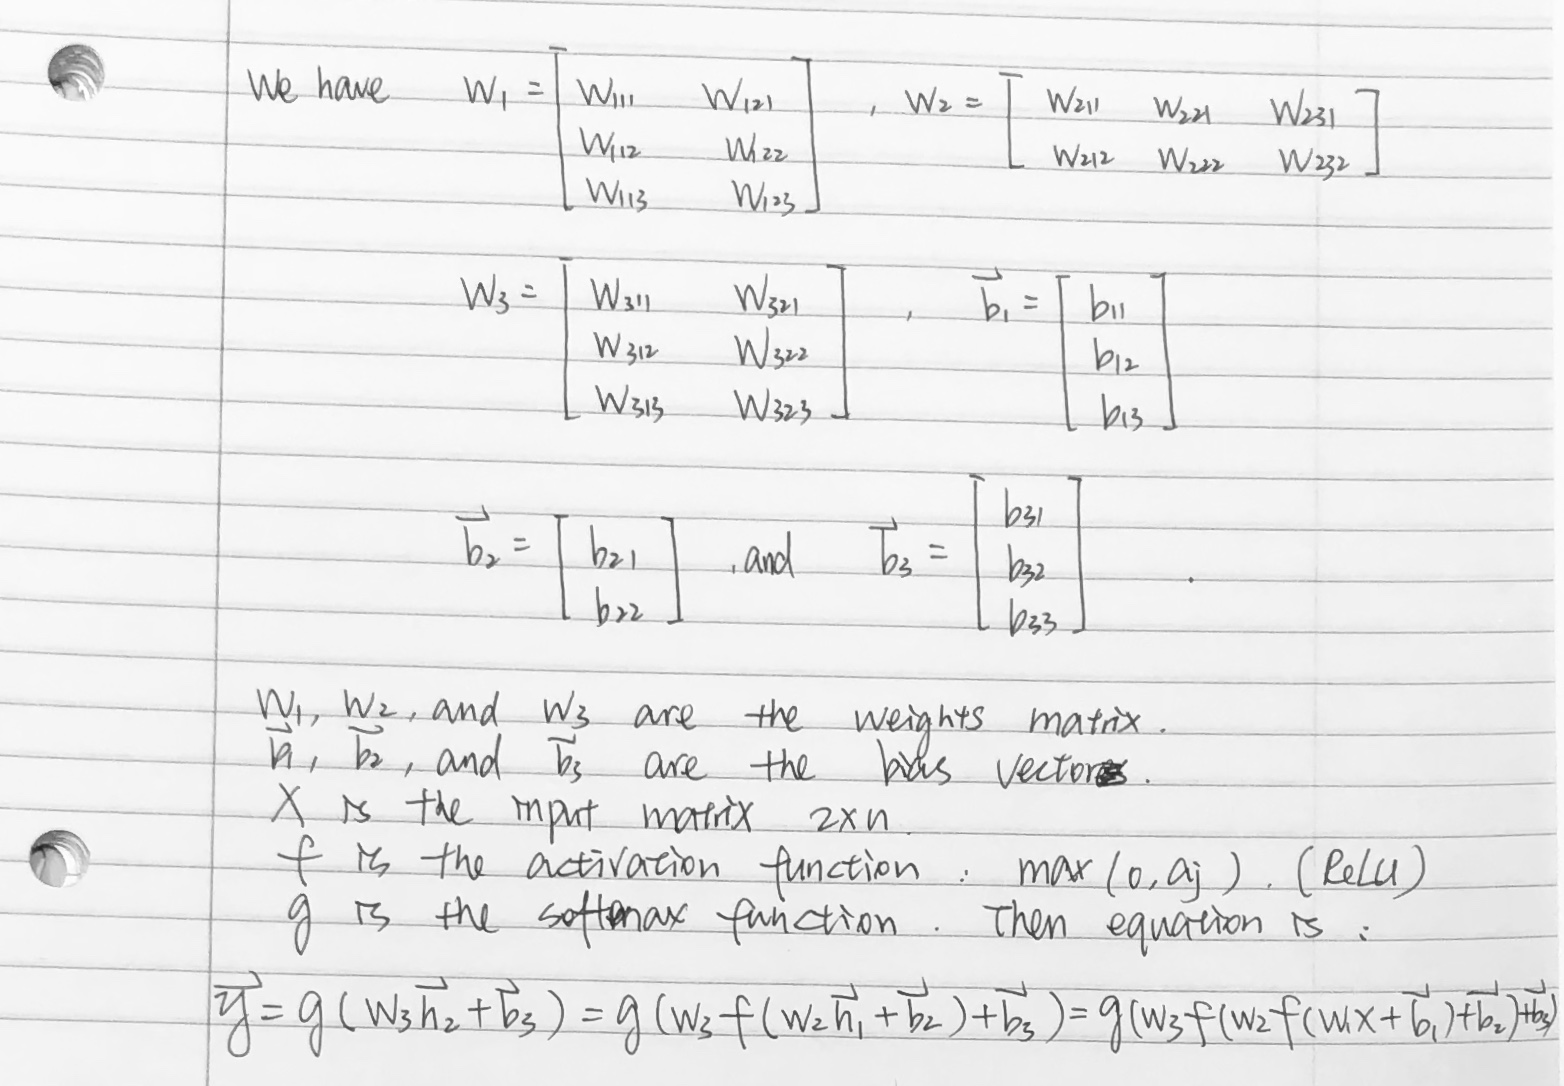 We have W₁ = [ W₁₁₁ W₁₂₁ ; W₁₁₂ W₁₂₂ ; W₁₁₃ W₁₂₃ ] , W₂ = [ W₂₁₁ W₂₂₁ W₂₃₁ ; W₂₁₂ W₂₂₂ W₂₃₂ ]
W₃ = [ W₃₁₁ W₃₂₁ ; W₃₁₂ W₃₂₂ ; W₃₁₃ W₃₂₃ ] , b⃗₁ = [ b₁₁ ; b₁₂ ; b₁₃ ]
b⃗₂ = [ b₂₁ ; b₂₂ ] , and b⃗₃ = [ b₃₁ ; b₃₂ ; b₃₃ ] .
W₁, W₂, and W₃ are the weights matrix.
b⃗₁, b⃗₂, and b⃗₃ are the bias vector.
X is the input matrix 2×n.
f is the activation function : max(0, aj). (ReLU)
g is the softmax function. Then equation is :
y⃗ = g(W₃h⃗₂ + b⃗₃) = g(W₃f(W₂h⃗₁ + b⃗₂) + b⃗₃) = g(W₃f(W₂f(W₁X + b⃗₁) + b⃗₂) + b⃗₃)